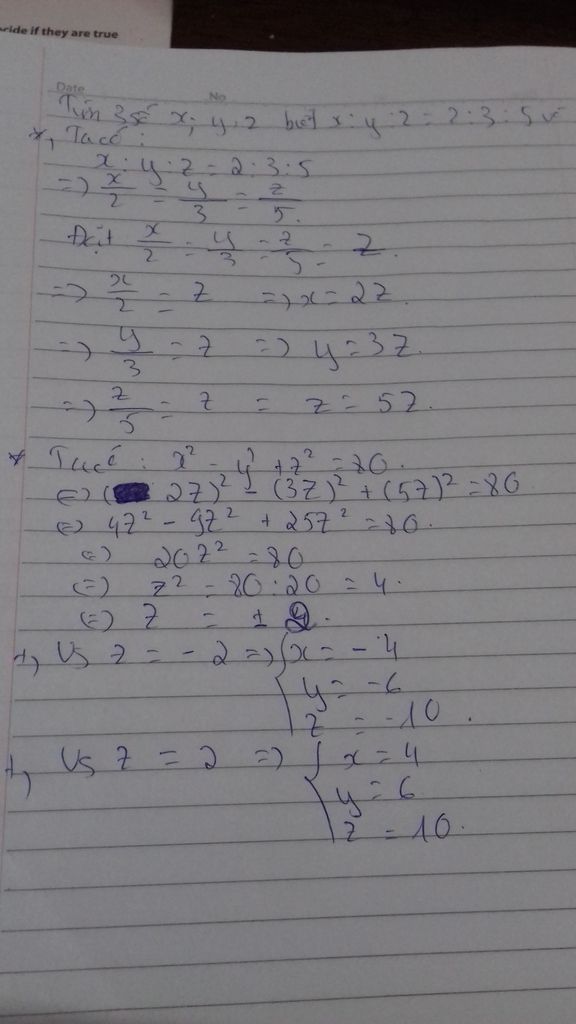 cide if they are true
Date No
Tìm 3 số x; y; z biết x : y : z = 2 : 3 : 5 và
*, Ta có :
x : y : z = 2 : 3 : 5
=> x/2 = y/3 = z/5.
Đặt x/2 = y/3 = z/5 = Z.
=> x/2 = Z => x = 2Z
=> y/3 = Z => y = 3Z.
=> z/5 = Z = z = 5Z.
* Ta có : x² - y² + z² = 80.
<=> (2Z)² - (3Z)² + (5Z)² = 80
<=> 4Z² - 9Z² + 25Z² = 80.
<=> 20Z² = 80
<=> Z² = 80 : 20 = 4.
<=> Z = ± 2.
+, Vs Z = - 2 => { x = - 4
y = - 6
z = - 10.
+, Vs Z = 2 => { x = 4
y = 6
z = 10.